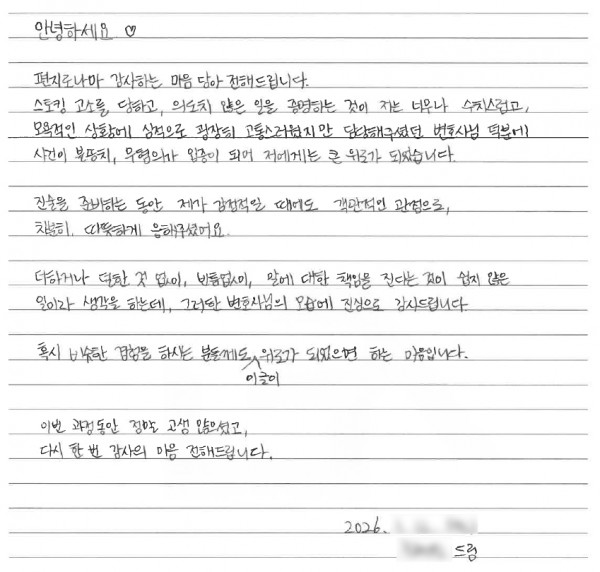 안녕하세요 ♡
편지로나마 감사하는 마음 담아 전해드립니다.
스토킹 고소를 당하고, 의도치 않은 일을 증명하는 것이 저는 너무나 수치스럽고,
모욕적인 상황에 심적으로 굉장히 고통스러웠지만 담당해주셨던 변호사님 덕분에
사건이 불송치, 무혐의가 입증이 되어 저에게는 큰 위로가 되었습니다.
진술을 준비하는 동안 제가 감정적일 때에도 객관적인 관점으로,
차분히, 따뜻하게 응해주셨어요.
더하거나 덜한 것 없이, 빠듬없이, 말에 대한 책임을 진다는 것이 쉽지 않은
일이라 생각을 하는데, 그러한 변호사님의 모습에 진심으로 감사드립니다
혹시 비슷한 경험을 하시는 분들께도 위로가 되었으면 하는 마음입니다.
이글이
이번 과정동안 정말 고생 많으셨고,
다시 한 번 감사의 마음 전해드립니다.
2026.
드림